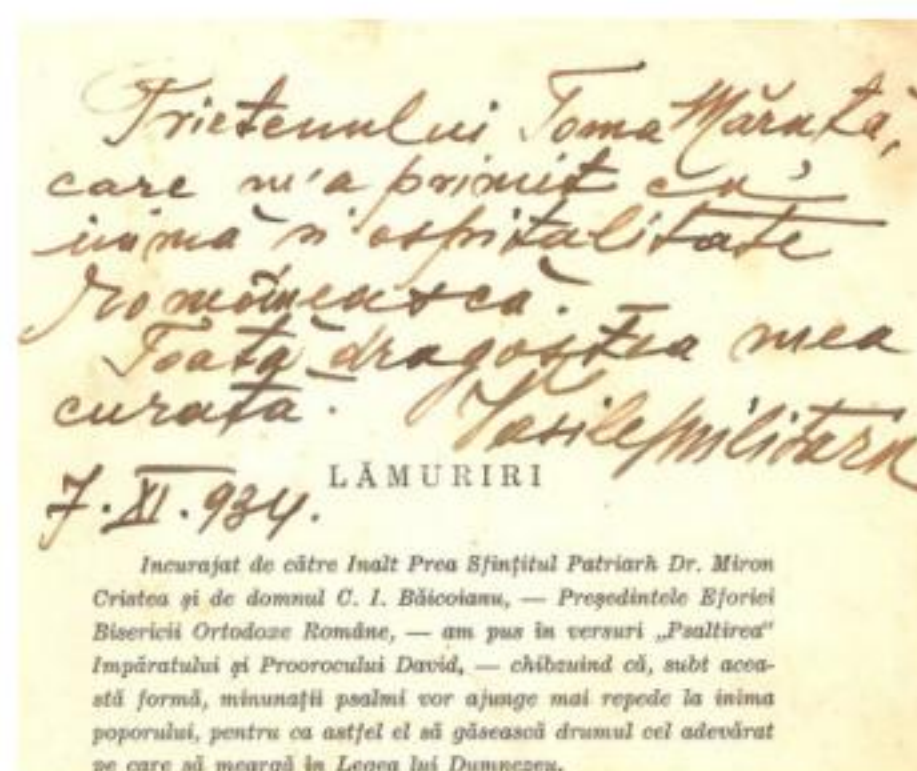 Prietenului Toma Mărută,
care m'a primit cu
inimă și ospitalitate
românească.
Toată dragostea mea
curată. Vasile Militaru
7.XI.934.
LĂMURIRI
Incurajat de către Inalt Prea Sfințitul Patriarh Dr. Miron
Cristea și de domnul C. I. Băicoianu, — Președintele Eforiei
Bisericii Ortodoxe Române, — am pus în versuri „Psaltirea“
Impăratului și Proorocului David, — chibzuind că, subt acea-
stă formă, minunații psalmi vor ajunge mai repede la inima
poporului, pentru ca astfel el să găsească drumul cel adevărat
pe care să meargă în Legea lui Dumnezeu.